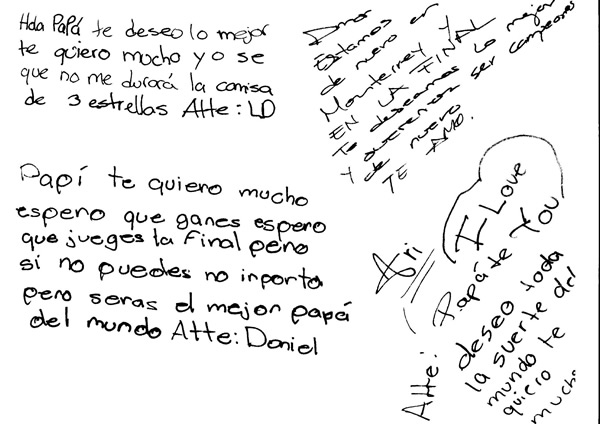 Hola Papá te deseo lo mejor
te quiero mucho y o se
que no me durará la camisa
de 3 estrellas Atte: LD
Amor
Estamos
de nuevo en
Monterrey y
EN LA FINAL
Te deseamos lo mejor
y queremos ser campeones
de nuevo
TE AMO.
Papí te quiero mucho
espero que ganes espero
que jueges la final pero
si no puedes no inporta
pero seras el mejor papá
del mundo Atte: Daniel
I Love
You
Papá te
deseo toda
la suerte del
mundo te
quiero
mucho
Atte: Ari